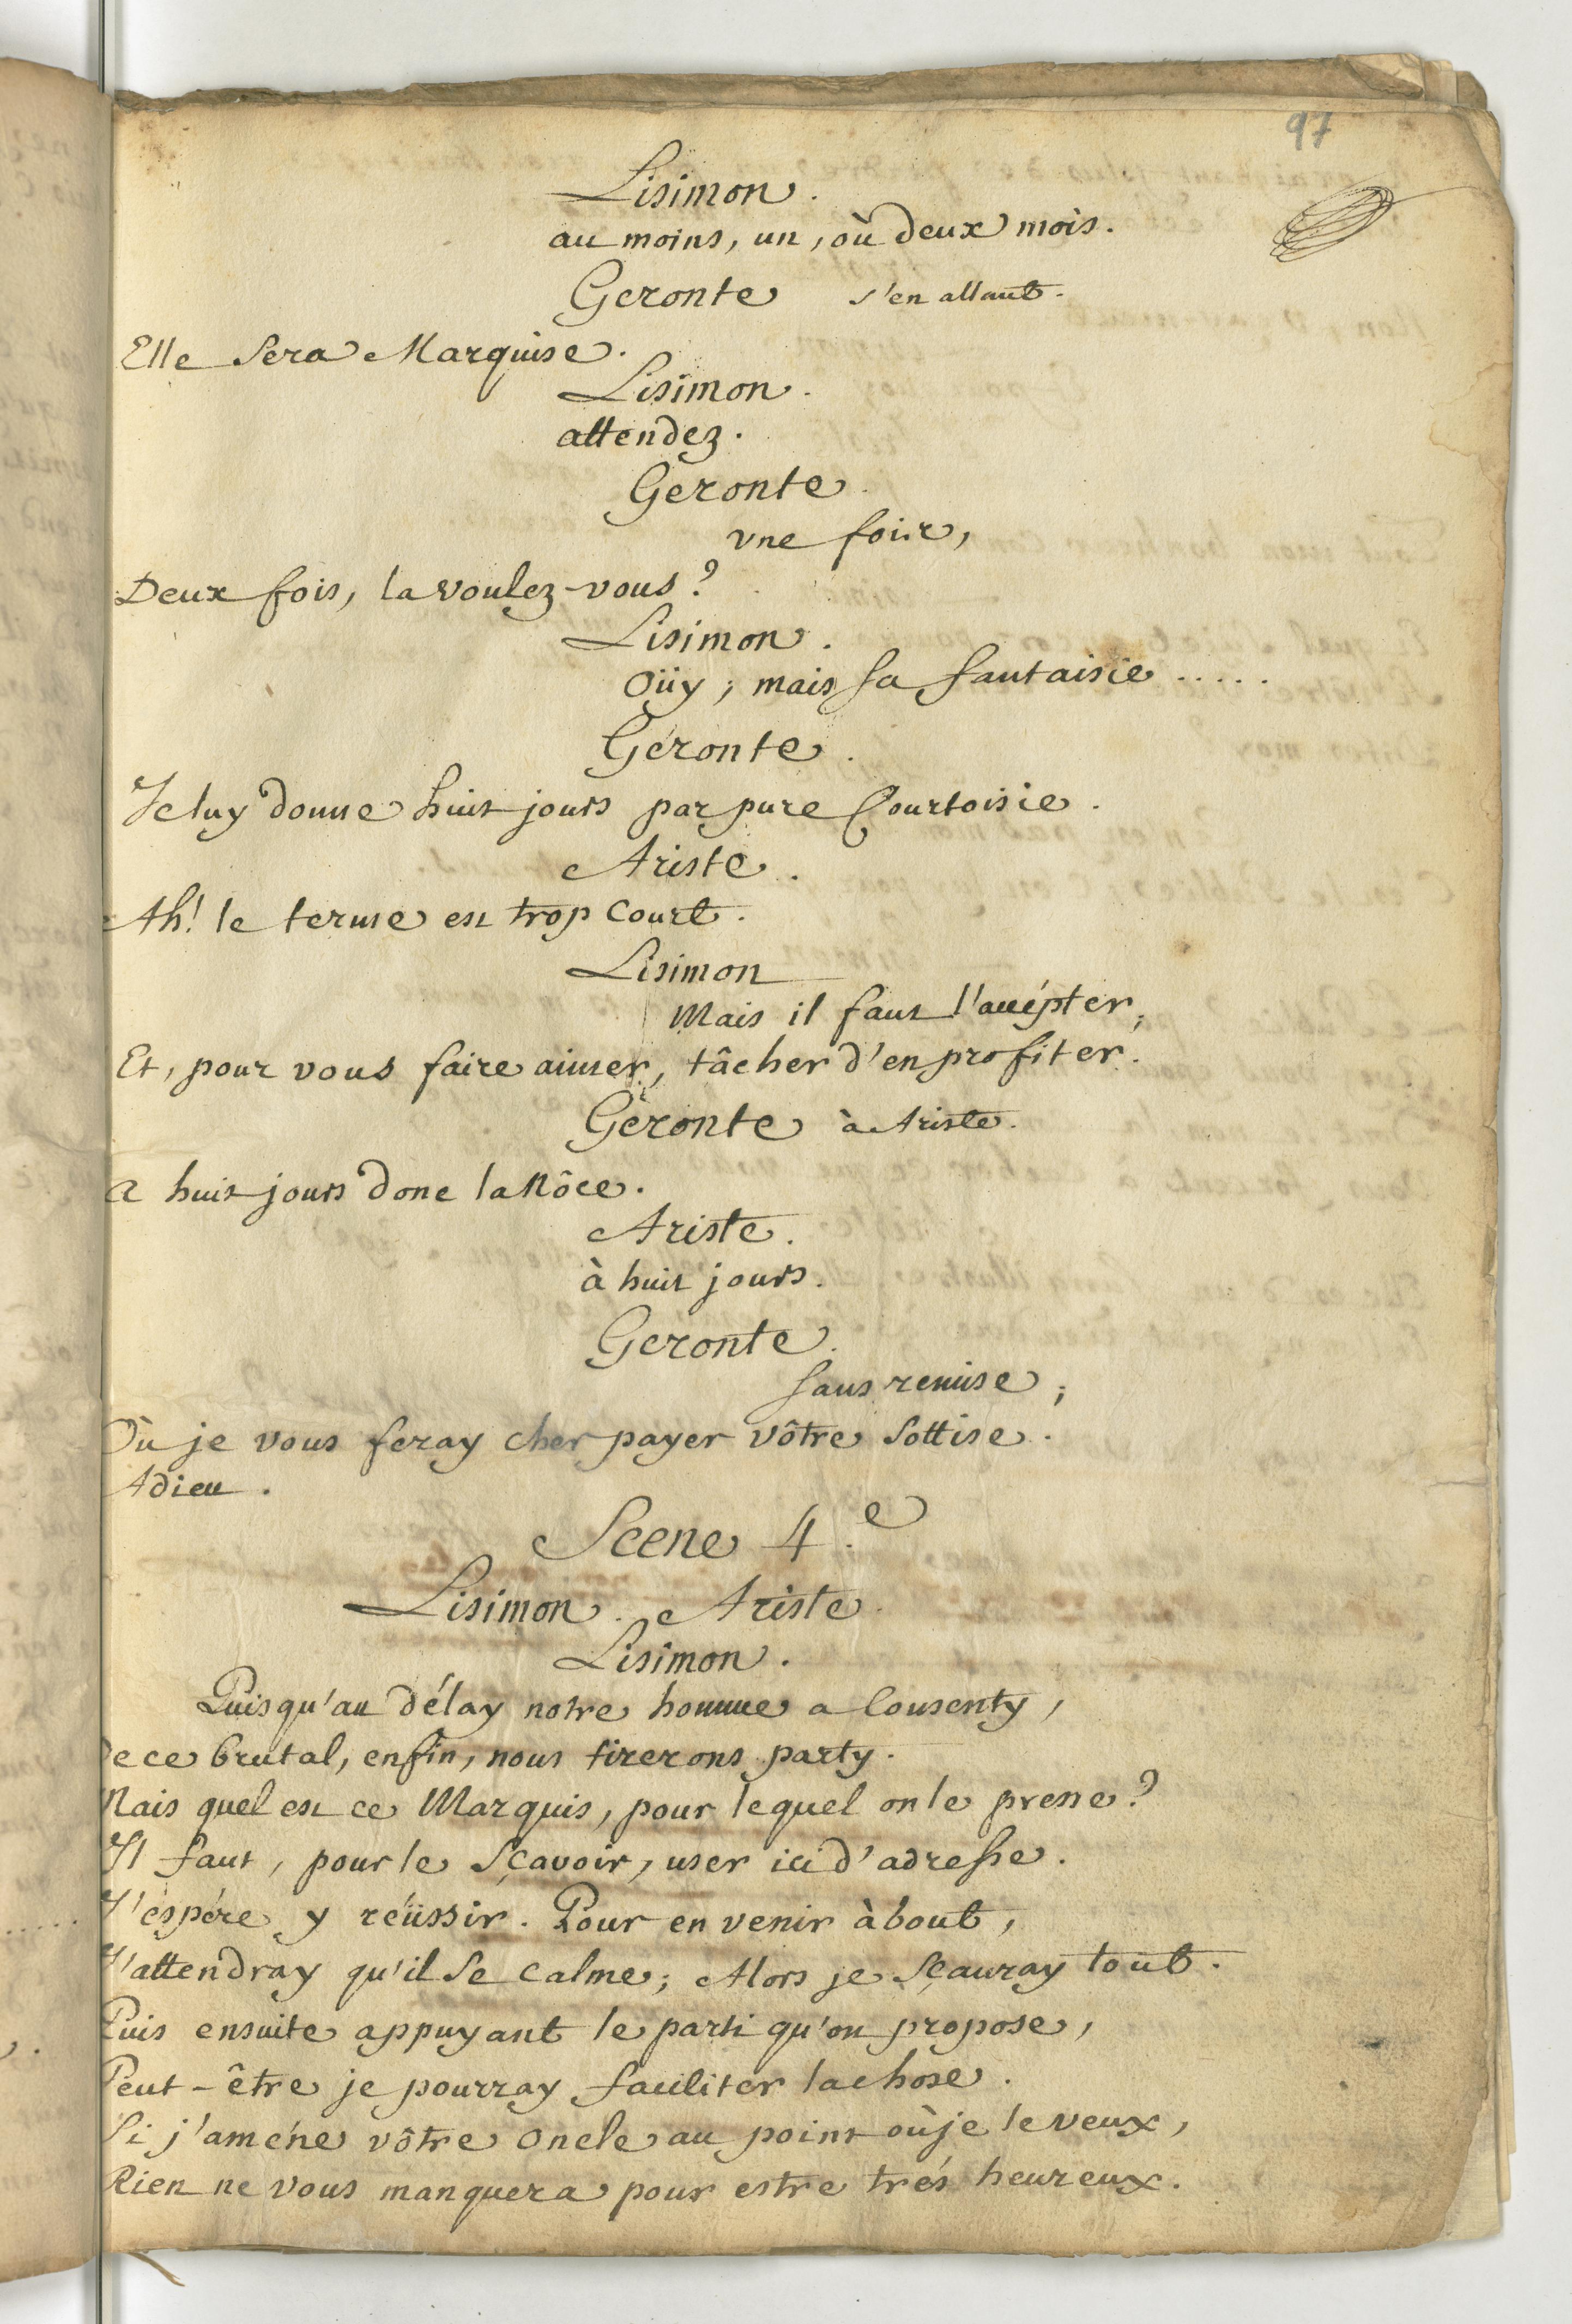 97
Lisimon.
au moins, un, où deux mois.
Geronte s'en allant.
Elle Sera Marquise.
Lisimon.
attendez.
Geronte.
vne fois,
Deux fois, la voulez-vous?
Lisimon.
Oüy; mais sa fantaisie.....
Géronte.
Je luy donne huit jours par pure Courtoisie.
Ariste.
Ah! le terme est trop Court.
Lisimon
Mais il faut l'accépter;
Et, pour vous faire aimer, tâcher d'en profiter.
Géronte à Ariste.
a huit jours donc la Nôce.
Ariste.
à huit jours.
Geronte.
sans remise;
Où je vous feray cher payer vôtre Sottise.
Adieu.
Scene 4.e
Lisimon. Ariste.
Lisimon.
Puisqu'au délay notre homme a Consenty,
De ce brutal, enfin, nous tirerons party.
Mais quel est ce Marquis, pour lequel on le presse?
Il faut, pour le Sçavoir, user ici d'adresse.
J'éspére y réüssir. Pour en venir à bout,
J'attendray qu'il Se Calme; Alors je Sçauray tout.
Puis ensuite appuyant le parti qu'on propose,
Peut-être je pourray faciliter la chose.
Si j'améne vôtre Oncle au point où je le veux,
Rien ne vous manquera pour estre trés heureux.